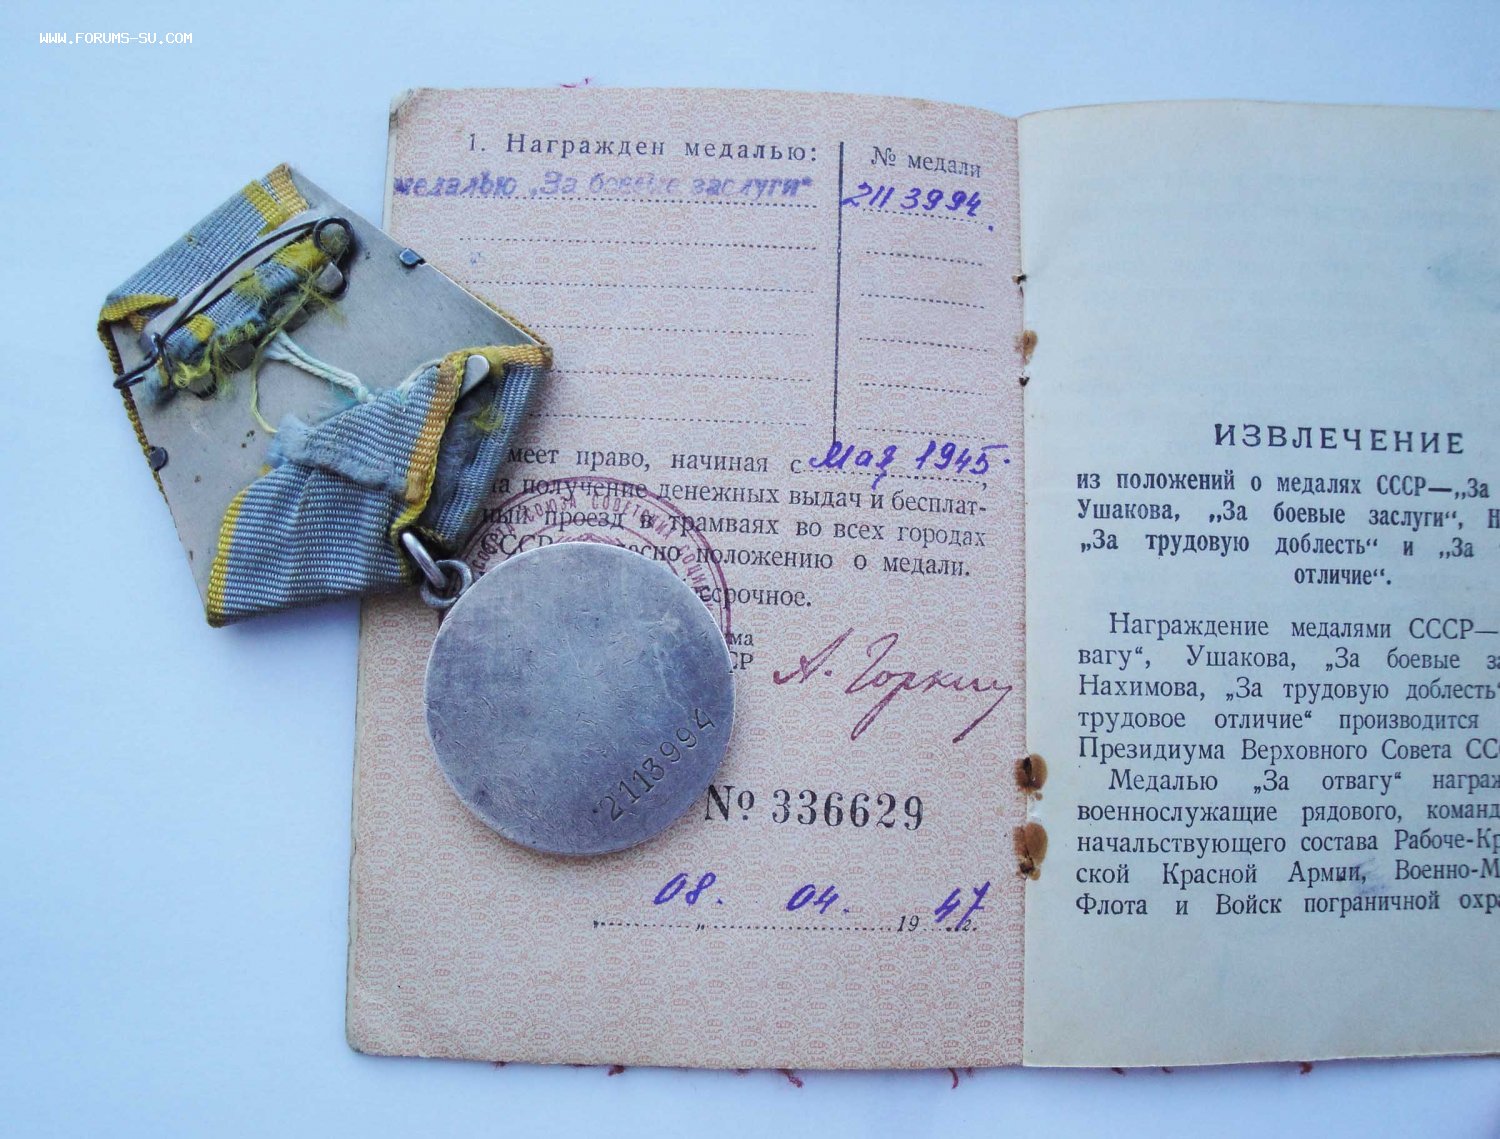 WWW.FORUMS-SU.COM
1. Награжден медалью:
№ медали
медалью „За боевые заслуги“
2113994
меет право, начиная с Мая 1945
на получение денежных выдач и бесплат-
ный проезд в трамваях во всех городах
СССР положению о медали.
ссрочное.
СР
А. Горкин
2113994
№ 336629
„08.“ 04. 1947 г.
ИЗВЛЕЧЕНИЕ
из положений о медалях СССР—„За
Ушакова, „За боевые заслуги“, Н
„За трудовую доблесть“ и „За
отличие“.
Награждение медалями СССР—
вагу“, Ушакова, „За боевые за
Нахимова, „За трудовую доблесть“
трудовое отличие“ производится
Президиума Верховного Совета СС
Медалью „За отвагу“ награж
военнослужащие рядового, команд
начальствующего состава Рабоче-Кр
ской Красной Армии, Военно-М
Флота и Войск пограничной охра